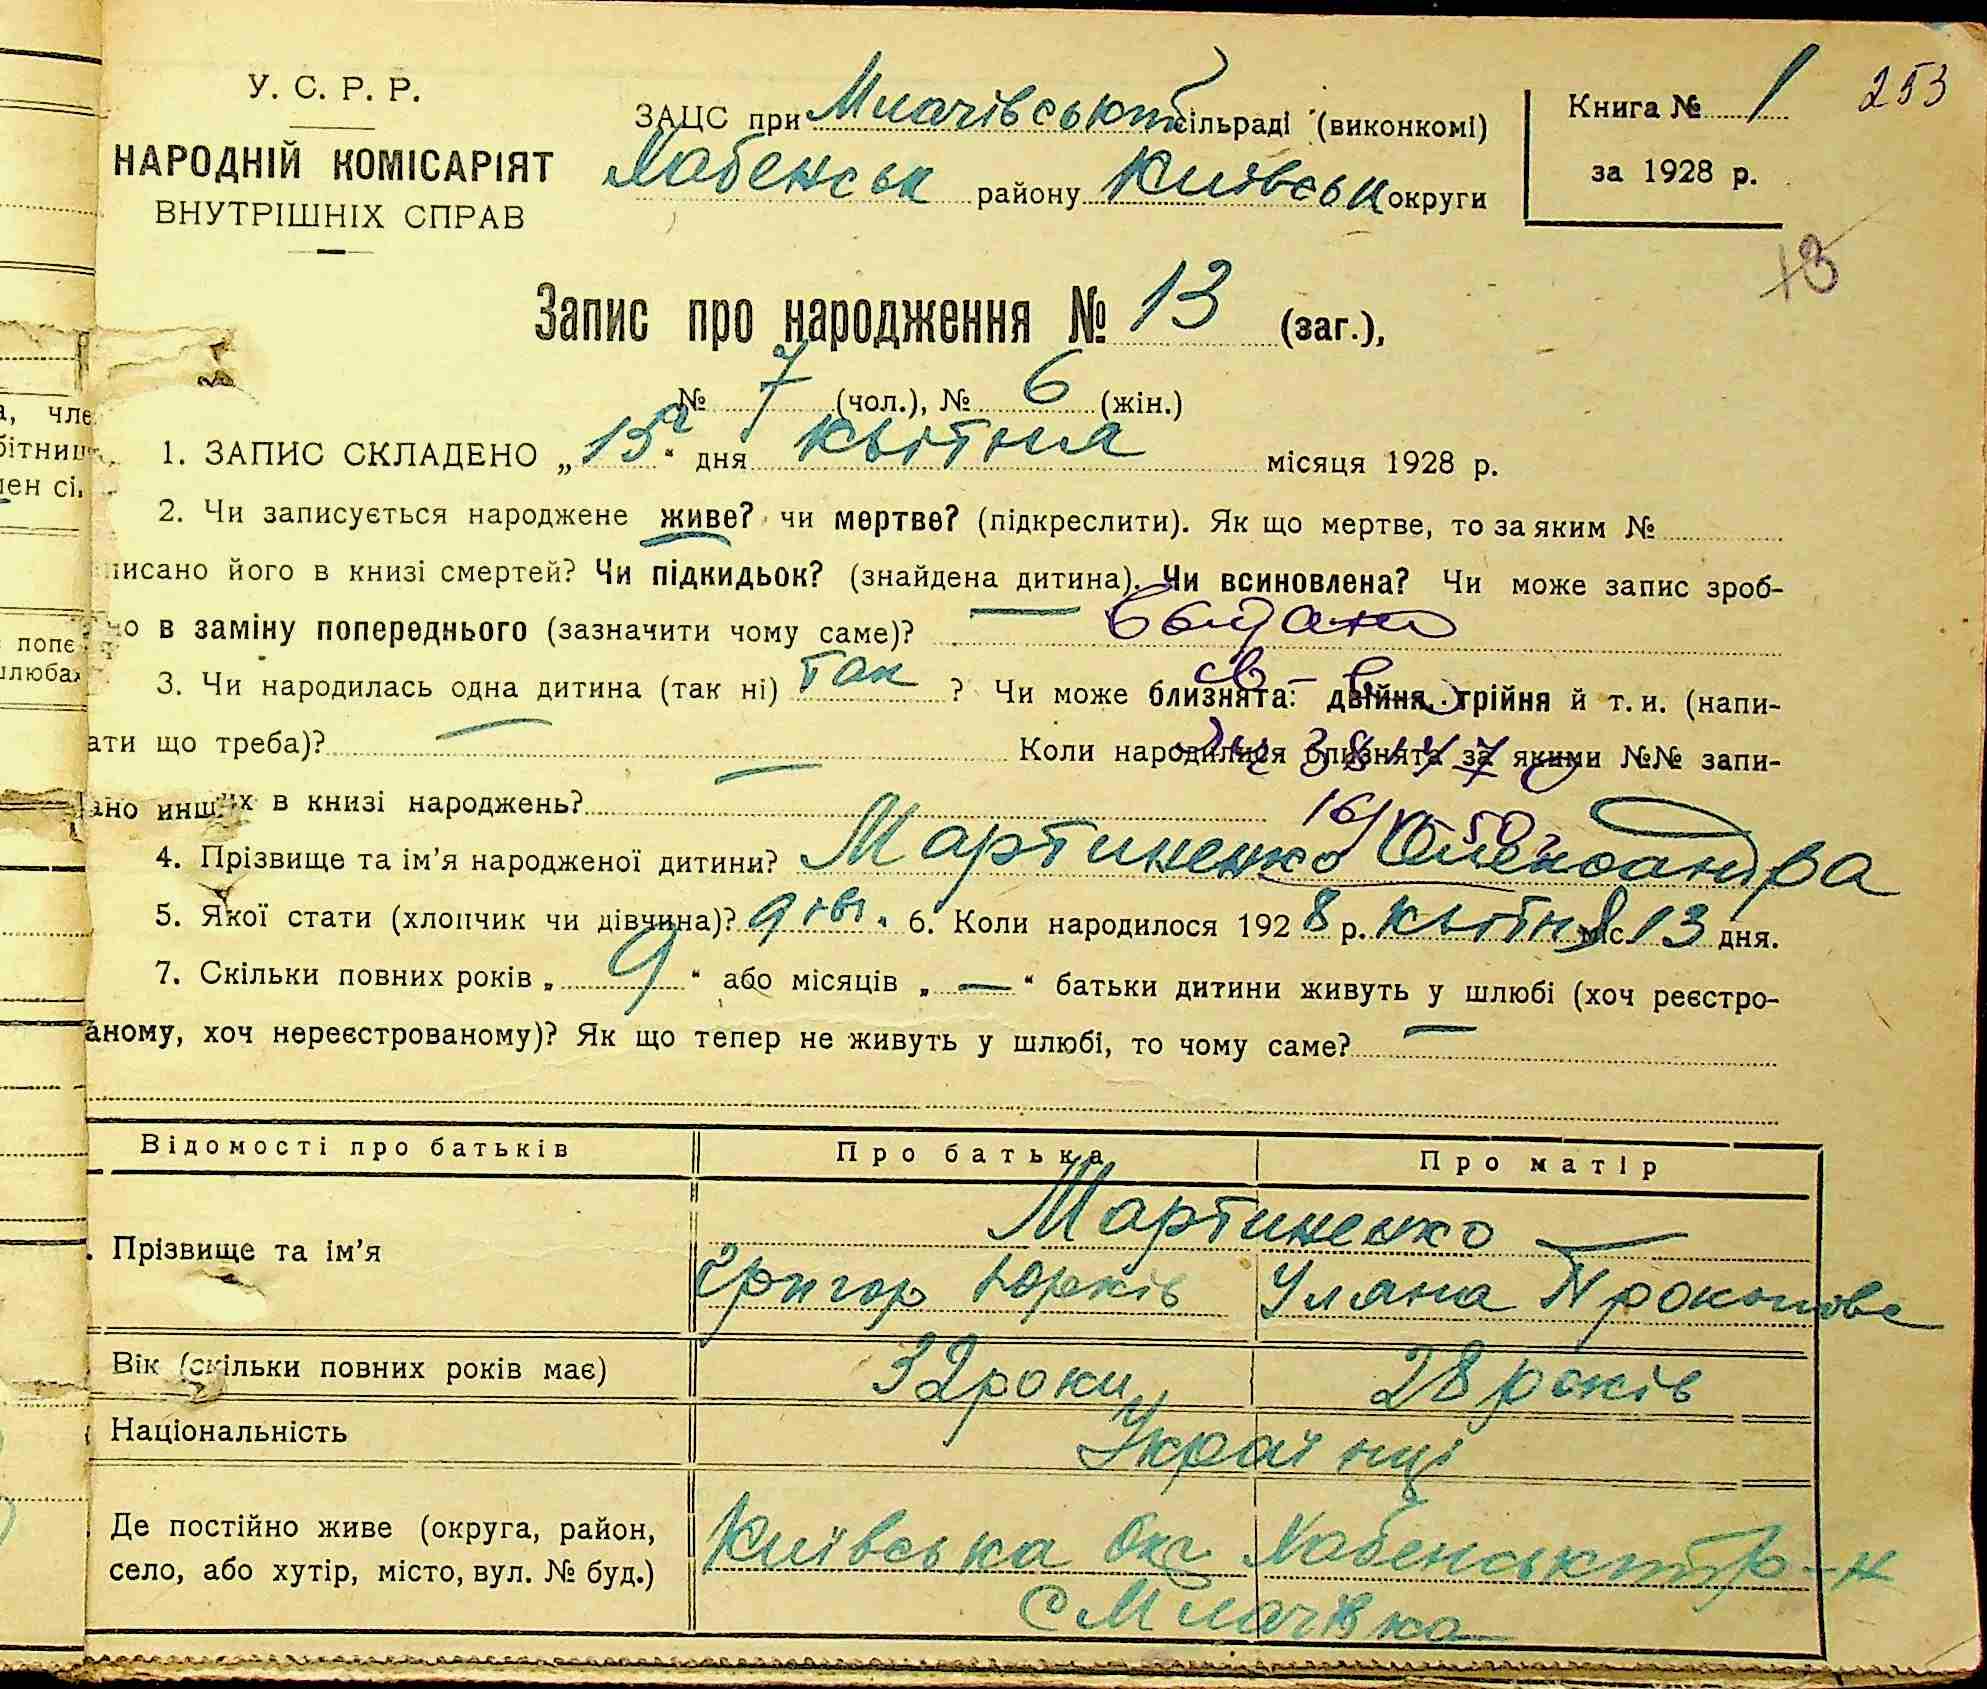 253
У. С. Р. Р.
НАРОДНІЙ КОМІСАРІЯТ
ВНУТРІШНІХ СПРАВ
ЗАЦС при Млачівській сільраді (виконкомі)
Хабенськ району Київськ округи
Книга № 1
за 1928 р.
13
Запис про народження № 13 (заг.),
№ 7 (чол.), № 6 (жін.)
1. ЗАПИС СКЛАДЕНО „ 15го “ дня квітня місяця 1928 р.
2. Чи записується народжене живе? чи мертве? (підкреслити). Як що мертве, то за яким №
писано його в книзі смертей? Чи підкидьок? (знайдена дитина). Чи всиновлена? Чи може запис зроб-
но в заміну попереднього (зазначити чому саме)? —
Выдано
3. Чи народилась одна дитина (так ні) так ? Чи може близнята: двійня, трійня й т. и. (напи-
св-во
ати що треба)? — Коли народилися близнята за якими №№ запи-
ано инших в книзі народжень? —
16/ 50
4. Прізвище та ім’я народженої дитини? Мартиненко Олександра
5. Якої стати (хлопчик чи дівчина)? дівч. 6. Коли народилося 1928 р. квітня міс. 13 дня.
7. Скільки повних років „ 9 “ або місяців „ — “ батьки дитини живуть у шлюбі (хоч реєстро-
аному, хоч нереєстрованому)? Як що тепер не живуть у шлюбі, то чому саме? —
Відомості про батьків Про батька Про матір
Прізвище та ім’я Мартиненко —
Григор Юрків Уляна Прокопова
Вік (скільки повних років має) 32 роки 28 років
Національність Українці
Де постійно живе (округа, район, Київська окг Хабенський р-н
село, або хутір, місто, вул. № буд.) с Млачівка
а, чле
бітниц
лен сі.
попе
шлюбах